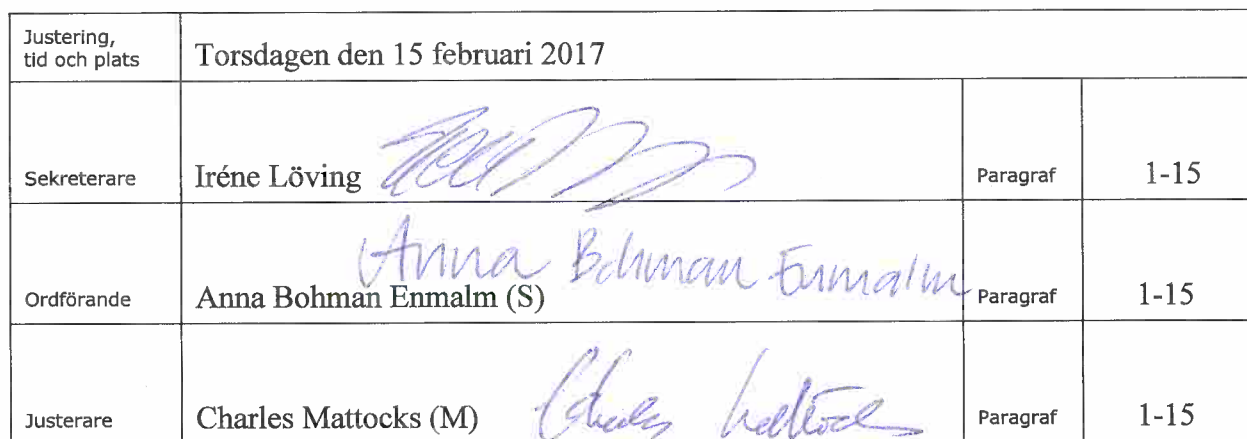 Justering,
tid och plats Torsdagen den 15 februari 2017
Sekreterare Iréne Löving Paragraf 1-15
Anna Bohman Enmalm
Ordförande Anna Bohman Enmalm (S) Paragraf 1-15
Justerare Charles Mattocks (M) Charles Mattocks Paragraf 1-15